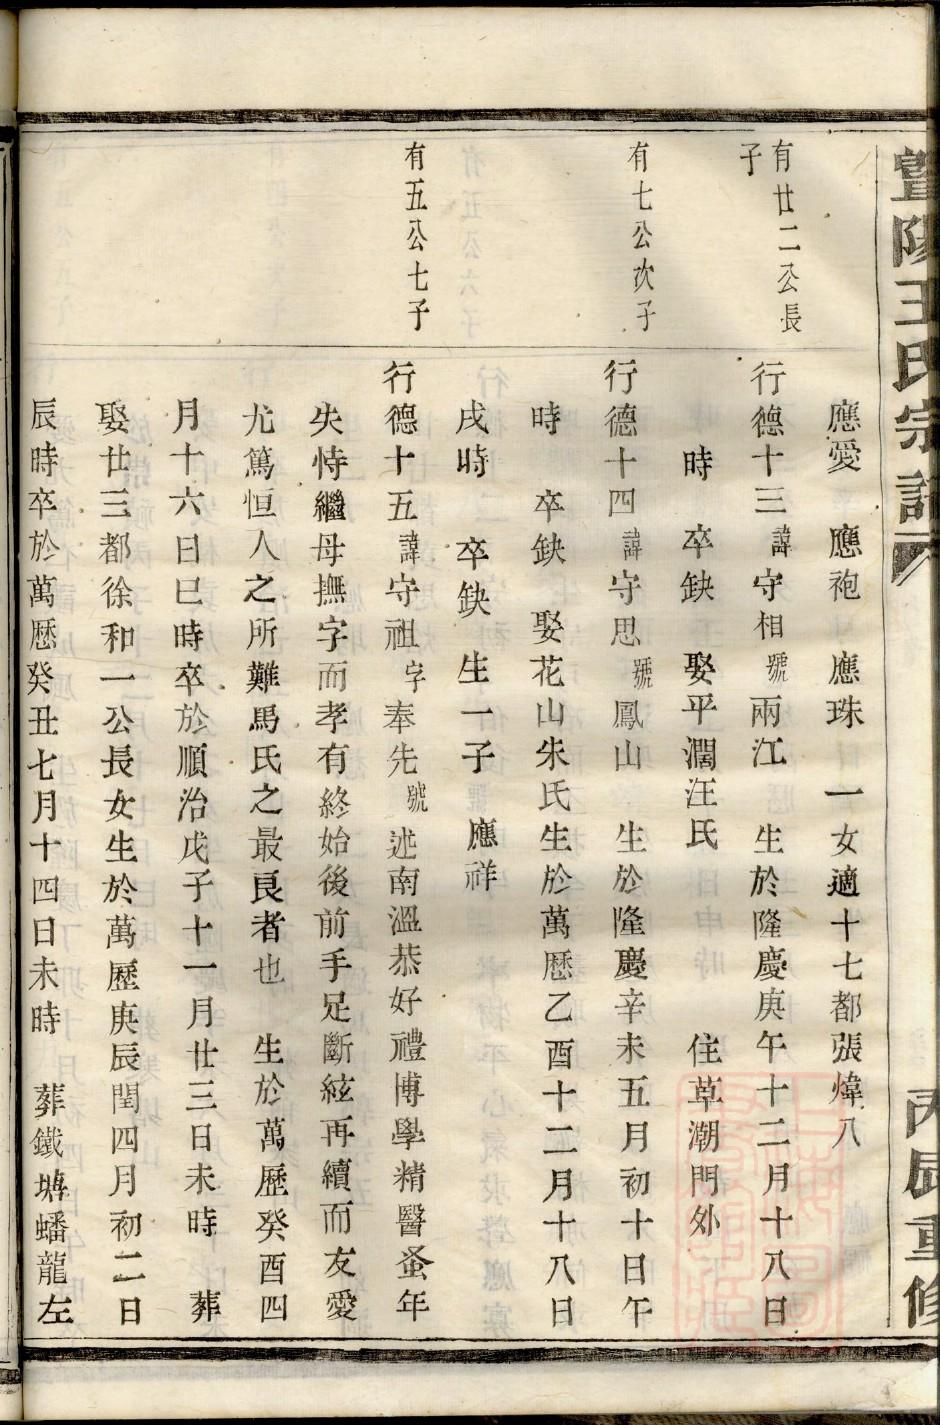 暨陽王氏宗譜
丙辰重修
應愛　應袍　應珠　一女適十七都張煒八
有廿二公長
子
行德十三諱守相號兩江　生於隆慶庚午十二月十八日
時　卒缺　娶平濶汪氏　住草潮門外
有七公次子
行德十四諱守思號鳳山　生於隆慶辛未五月初十日午
時　卒缺　娶花山朱氏生於萬歷乙酉十二月十八日
戌時　卒缺　生一子　應祥
有五公七子
行德十五諱守祖字奉先號述南溫恭好禮博學精醫蚤年
失恃繼母撫字而孝有終始後前手足斷絃再續而友愛
尤篤恒人之所難馬氏之最良者也　生於萬歷癸酉四
月十六日巳時卒於順治戊子十一月廿三日未時　葬
娶廿三都徐和一公長女生於萬歷庚辰閏四月初二日
辰時卒於萬歷癸丑七月十四日未時　葬鐵塘蟠龍左